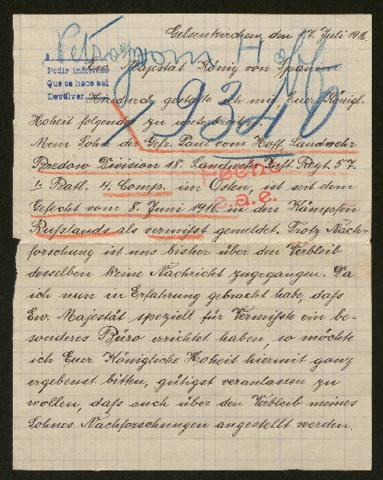 Gelsenkirchen, den 17. Juli 1916.
Petrograd Hoff
A
Pedir informes
Que se hace así
Devolver
Ew. Majestät König von Spanien
9340
Hindurch gestatte ich mir Euer Königl.
Hoheit folgendes zu unterbreiten
Mein Sohn der Gefr. Paul vom Hoff, Landwehr
Bredow Division 18. Landwehr Inft. Regt. 57.
I. Batl. 4. Comp. im Osten, ist seit dem
Hecho
e.a.e.
Gefecht vom 8. Juni 1916 in den Kämpfen
Rußlands als vermisst gemeldet. Trotz Nach-
forschung ist uns bisher über den Verbleib
desselben keine Nachricht zugegangen. Da
ich nun in Erfahrung gebracht habe, daß
Ew. Majestät speziell für Vermißte ein be-
sonderes Büro errichtet haben, so möchte
ich Euer Königliche Hoheit hiermit ganz
ergebenst bitten, gütigst veranlassen zu
wollen, daß auch über den Verbleib meines
Sohnes Nachforschungen angestellt werden.